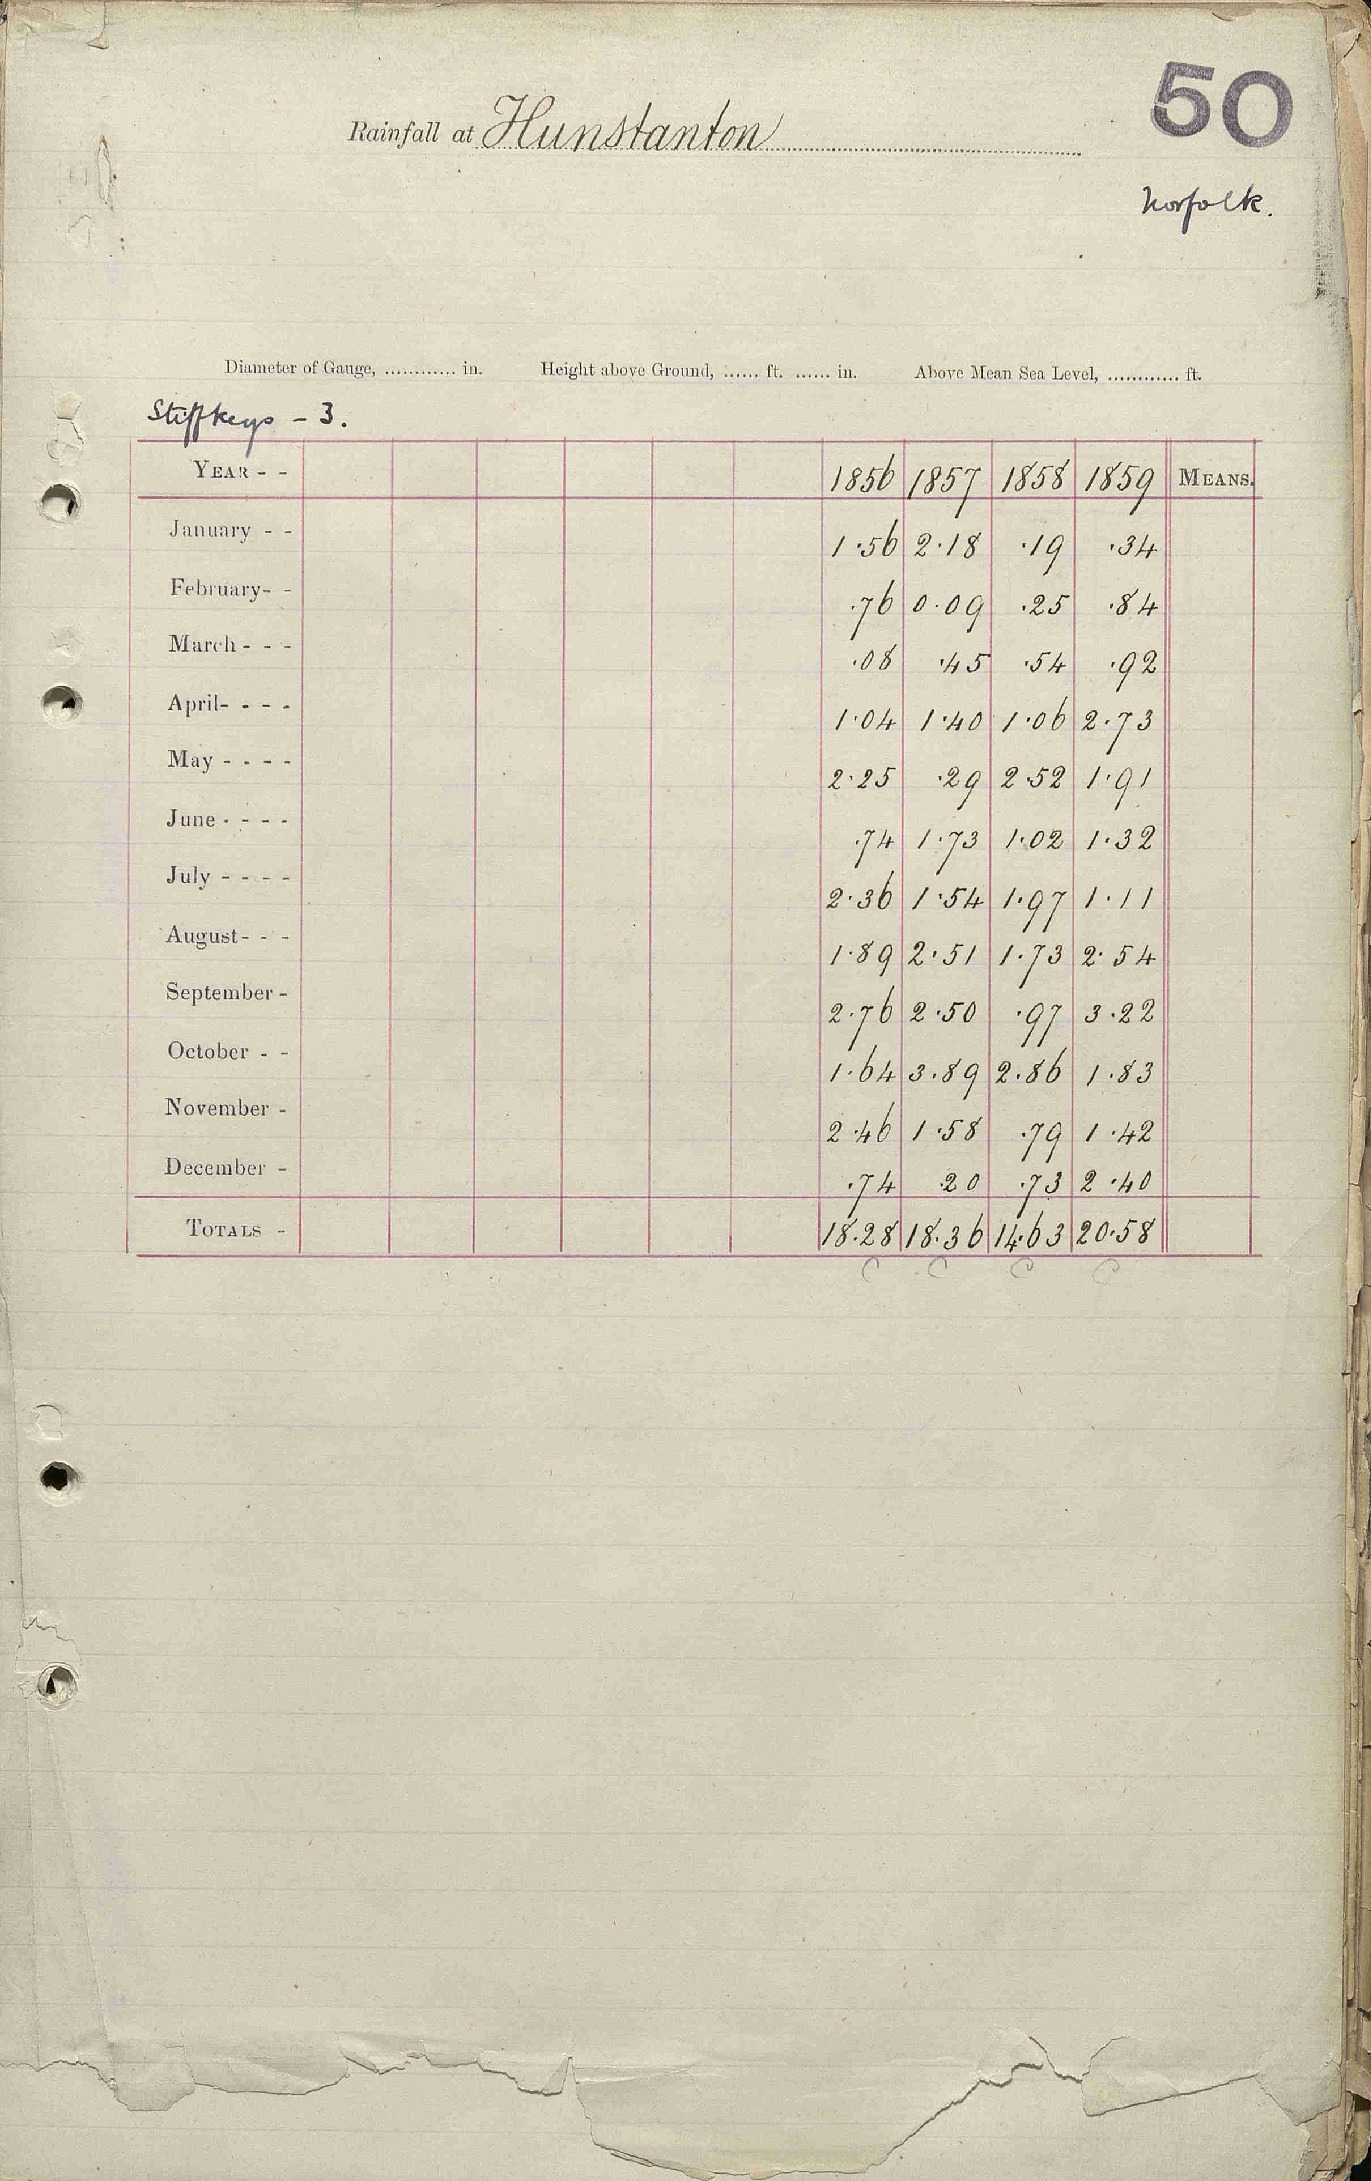 50
Rainfall at Hunstanton
Norfolk.
Diameter of Gauge, ............ in. Height above Ground, ...... ft. ...... in. Above Mean Sea Level, ............ ft.
Stiffkeys - 3.
YEAR - - 1856 1857 1858 1859 MEANS.
January - - 1.56 2.18 .19 .34
February - - .76 0.09 .25 .84
March - - - .08 .45 .54 .92
April - - - - 1.04 1.40 1.06 2.73
May - - - - 2.25 .29 2.52 1.91
June - - - - .74 1.73 1.02 1.32
July - - - - 2.36 1.54 1.97 1.11
August - - - 1.89 2.51 1.73 2.54
September - 2.76 2.50 .97 3.22
October - - 1.64 3.89 2.86 1.83
November - 2.46 1.58 .79 1.42
December - .74 .20 .73 2.40
TOTALS - 18.28 18.36 14.63 20.58
C C C C